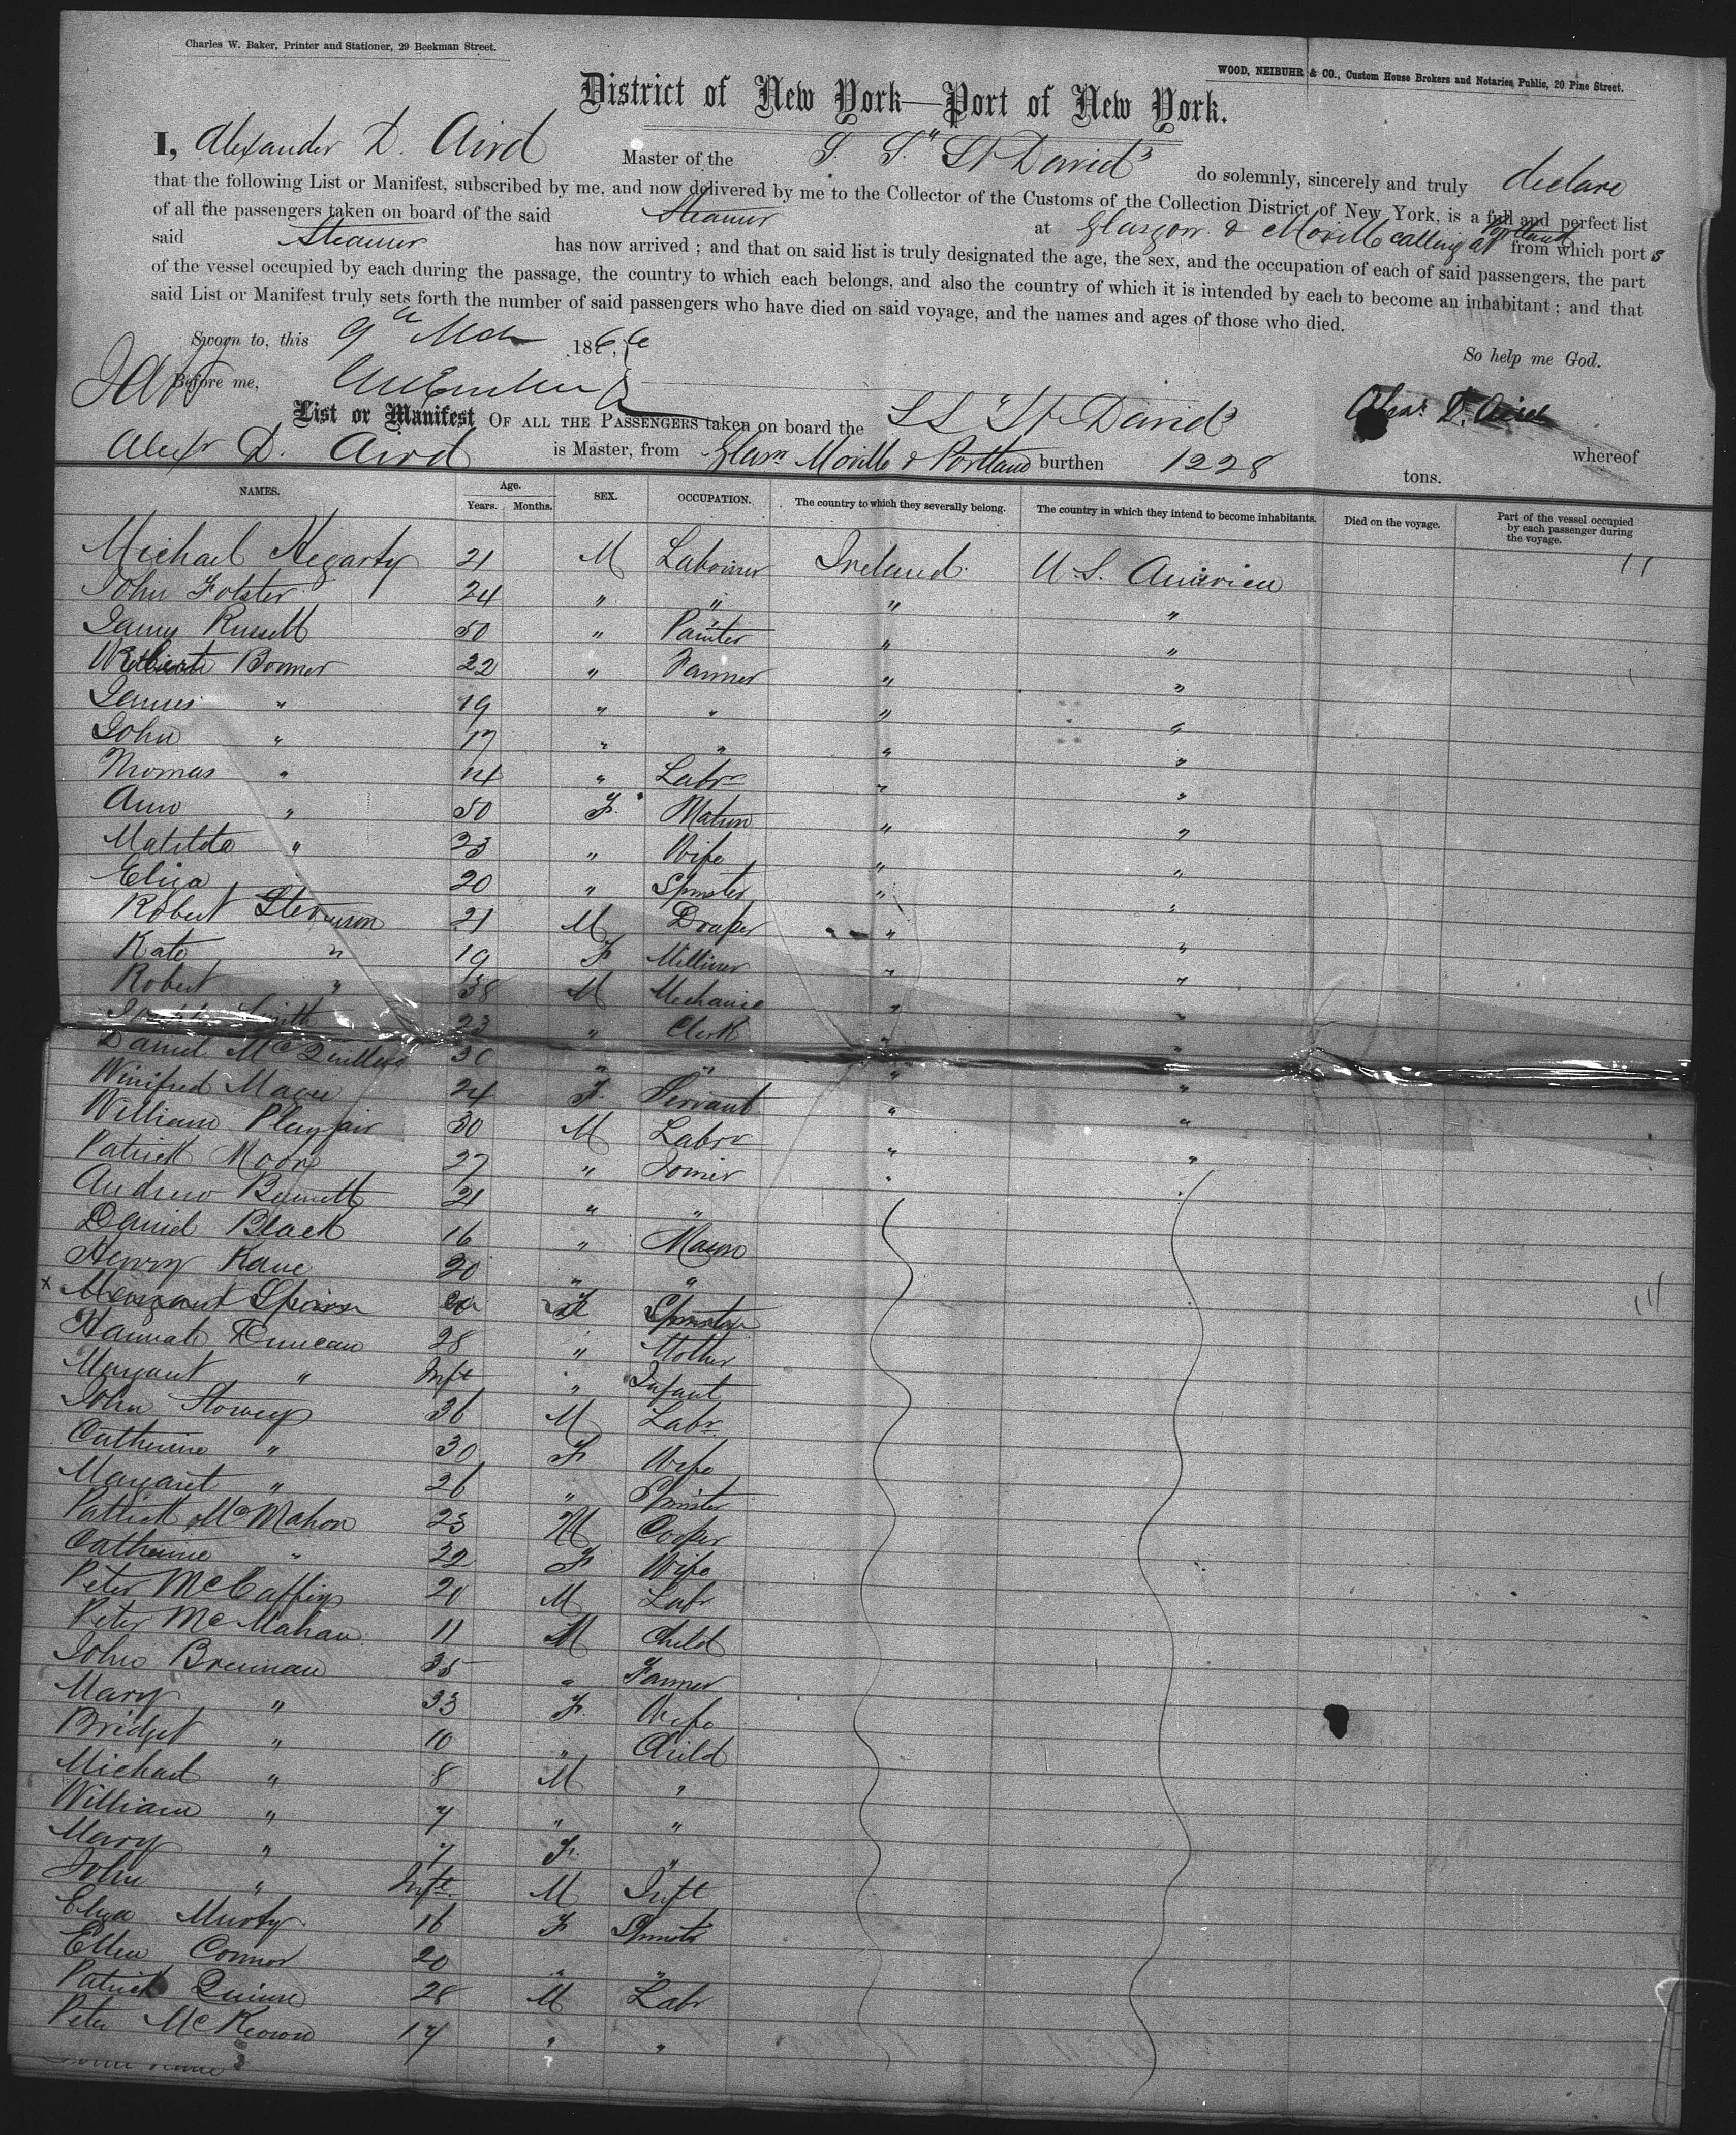 Charles W. Baker, Printer and Stationer, 29 Beekman Street.
WOOD, NEIBUHR & CO., Custom House Brokers and Notaries Public, 20 Pine Street.
District of New York—Port of New York.
I, Alexander D. Aird Master of the S. S. "St David" do solemnly, sincerely and truly declare
that the following List or Manifest, subscribed by me, and now delivered by me to the Collector of the Customs of the Collection District of New York, is a full and perfect list
of all the passengers taken on board of the said Steamer at Glasgow & Moville calling at Portland from which ports
said Steamer has now arrived ; and that on said list is truly designated the age, the sex, and the occupation of each of said passengers, the part
of the vessel occupied by each during the passage, the country to which each belongs, and also the country of which it is intended by each to become an inhabitant ; and that
said List or Manifest truly sets forth the number of said passengers who have died on said voyage, and the names and ages of those who died.
Sworn to, this 9th Mch 1866
So help me God.
Before me,
Alexr D. Aird
List or Manifest OF ALL THE PASSENGERS taken on board the SS "St David" whereof
Alexr D. Aird is Master, from Glasw Moville & Portland burthen 1228 tons.
NAMES. Age. Years. Months. SEX. OCCUPATION. The country to which they severally belong. The country in which they intend to become inhabitants. Died on the voyage. Part of the vessel occupied by each passenger during the voyage.
Michael Hegarty 21 M Labourer Ireland U. S. America 11
John Folster 24 " " " "
James Russell 50 " Painter " "
Boomer 22 " Farmer " "
James " 19 " " " "
John " 17 " " " "
Thomas " 14 " Labr " "
Ann " 50 F. Matron " "
Matilda " 23 " Wife " "
Eliza 20 " Spinster " "
Robert Stevenson 21 M Draper " "
Kate " 19 F Milliner " "
Robert " 38 M Mechanic " "
Smith 23 " Clerk " "
Daniel McQuillan 30 " " " "
Winifred Magee 24 F. Servant " "
William Playfair 30 M Labr " "
Patrick Moore 27 " Joiner " "
Andrew Bennett 21 " "
Daniel Black 16 " Mason
Henry Kane 20 " "
x Margaret F Spinster
Hannah Duncan 28 " Mother
Margaret " Inft " Infant
John Stowey 36 M Labr
Catherine " 30 F Wife
Margaret " 26 " Spinster
Patrick McMahon 23 M Cooper
Catherine " 22 F Wife
Peter McCaffry 20 M Labr
Peter McMahan 11 M Child
John Brennan 35 " Farmer
Mary " 33 F. Wife
Bridget " 10 " Child
Michael " 8 M "
William " 7 " "
Mary " 7 F. "
John " Inft. M Inft
Eliza Murphy 16 F Spinstr
Ellen Connor 20 " "
Patrick Quinn 28 M Labr
Peter McKeown 17 " "